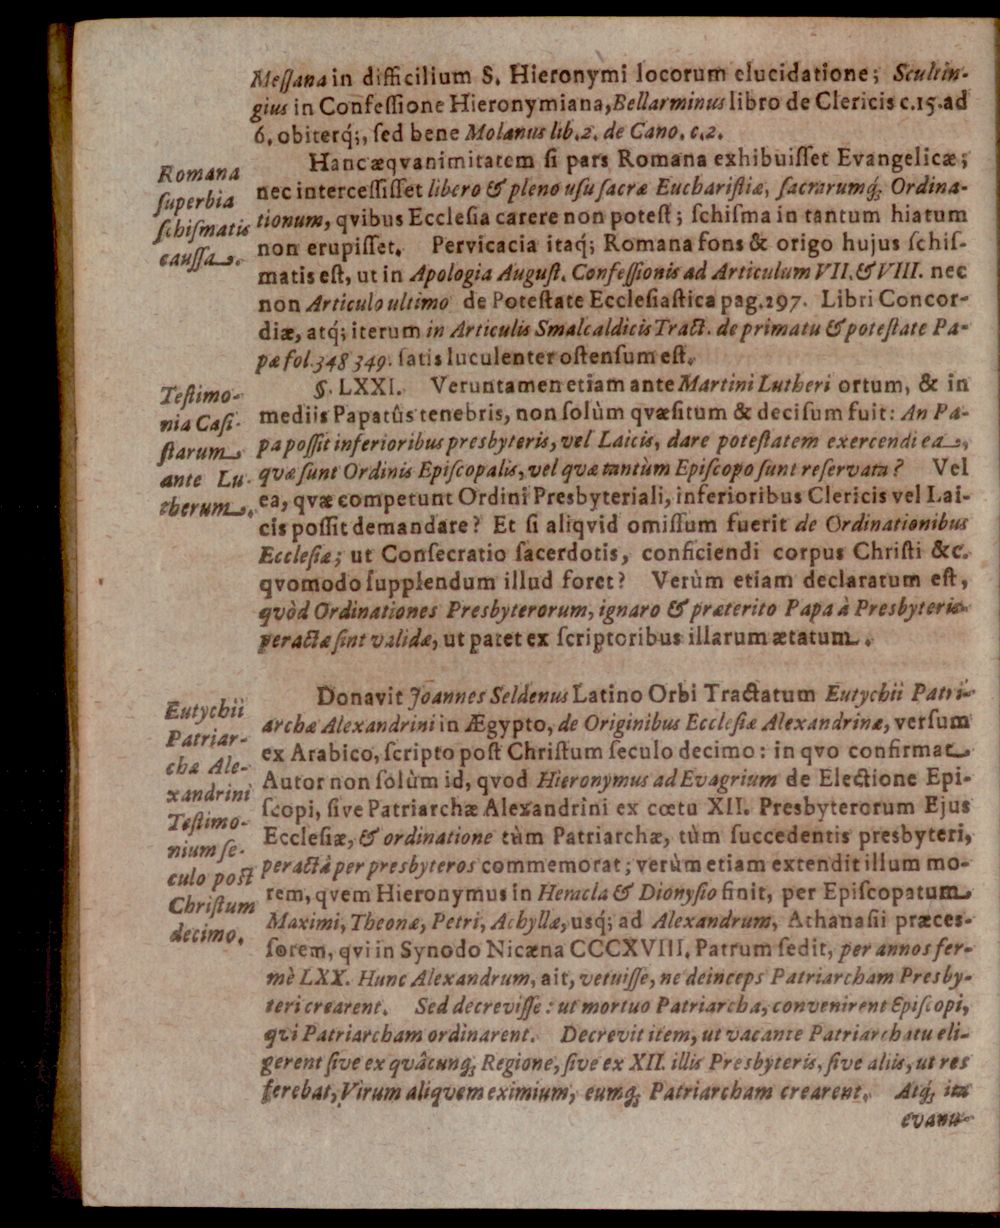 Meſſana in difficilium S. Hieronymi locorum elucidatione; Scultin-
gius in Confeſſione Hieronymiana, Bellarminus libro de Clericis c.15. ad
6. obiterq́;, ſed bene Molanus lib. 2. de Cano. c. 2.
Romana
ſuperbia
ſchiſmatis
cauſſa.
Hanc æqvanimitatem ſi pars Romana exhibuiſſet Evangelicæ;
nec interceſſiſſet libero & pleno uſu ſacræ Euchariſtiæ, ſacrarumq́; Ordina-
tionum, qvibus Eccleſia carere non poteſt; ſchiſma in tantum hiatum
non erupiſſet. Pervicacia itaq́; Romana fons & origo hujus ſchiſ-
matis eſt, ut in Apologia Auguſt. Confeſſionis ad Articulum VII. & VIII. nec
non Articulo ultimo de Poteſtate Eccleſiaſtica pag. 297. Libri Concor-
diæ, atq́; iterum in Articulis Smalcaldicis Tract. de primatu & poteſtate Pa-
pæ fol. 348 349. ſatis luculenter oſtenſum eſt.
Teſtimo-
nia Caſi-
ſtarum
ante Lu-
therum.
§. LXXI. Veruntamen etiam ante Martini Lutheri ortum, & in
mediis Papatûs tenebris, non ſolùm qvæſitum & deciſum fuit: An Pa-
pa poſſit inferioribus presbyteris, vel Laicis, dare poteſtatem exercendi ea,
quæ ſunt Ordinis Epiſcopalis, vel quæ tantùm Epiſcopo ſunt reſervata? Vel
ea, qvæ competunt Ordini Presbyteriali, inferioribus Clericis vel Lai-
cis poſſit demandare? Et ſi aliqvid omiſſum fuerit de Ordinationibus
Eccleſiæ; ut Conſecratio ſacerdotis, conficiendi corpus Chriſti &c.
qvomodo ſupplendum illud foret? Verùm etiam declaratum eſt,
quòd Ordinationes Presbyterorum, ignaro & præterito Papa à Presbyteris
peractæ ſint validæ, ut patet ex ſcriptoribus illarum ætatum.
Eutychii
Patriar-
chæ Ale-
xandrini
Teſtimo-
nium ſe-
culo poſt
Chriſtum
decimo.
Donavit Joannes Seldenus Latino Orbi Tractatum Eutychii Patri-
archæ Alexandrini in Ægypto, de Originibus Eccleſiæ Alexandrinæ, verſum
ex Arabico, ſcripto poſt Chriſtum ſeculo decimo: in qvo confirmat
Autor non ſolùm id, qvod Hieronymus ad Evagrium de Electione Epi-
ſcopi, ſive Patriarchæ Alexandrini ex cœtu XII. Presbyterorum Ejus
Eccleſiæ, & ordinatione tùm Patriarchæ, tùm ſuccedentis presbyteri,
peractâ per presbyteros commemorat; verùm etiam extendit illum mo-
rem, qvem Hieronymus in Heracla & Dionyſio finit, per Epiſcopatum
Maximi, Theonæ, Petri, Achyllæ, usq́; ad Alexandrum, Athanaſii præceſ-
ſorem, qvi in Synodo Nicæna CCCXVIII. Patrum ſedit, per annos fer-
mè LXX. Hunc Alexandrum, ait, vetuiſſe, ne deinceps Patriarcham Presby-
teri crearent. Sed decreviſſe: ut mortuo Patriarcha, convenirent Epiſcopi,
qvi Patriarcham ordinarent. Decrevit item, ut vacante Patriarchatu eli-
gerent ſive ex quâcunq́; Regione, ſive ex XII. illis Presbyteris, ſive aliis, ut res
ferebat, Virum aliqvem eximium, eumq́; Patriarcham crearent. Atq́; ita
evanu-